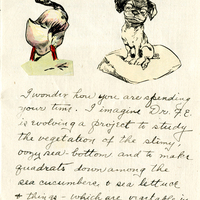 I wonder how you are spending
your time. I imagine Dr. F.E.
is evolving a project to study
the vegetation of the slimy,
oozy sea-bottom and to make
quadrats down among the
sea cucumbers, & sea lettuce
& things - which are vegetable in